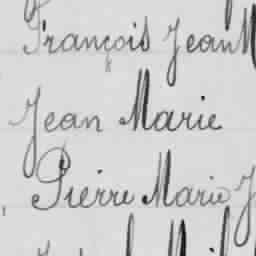 François Jean M
Jean Marie
Pierre Marie J